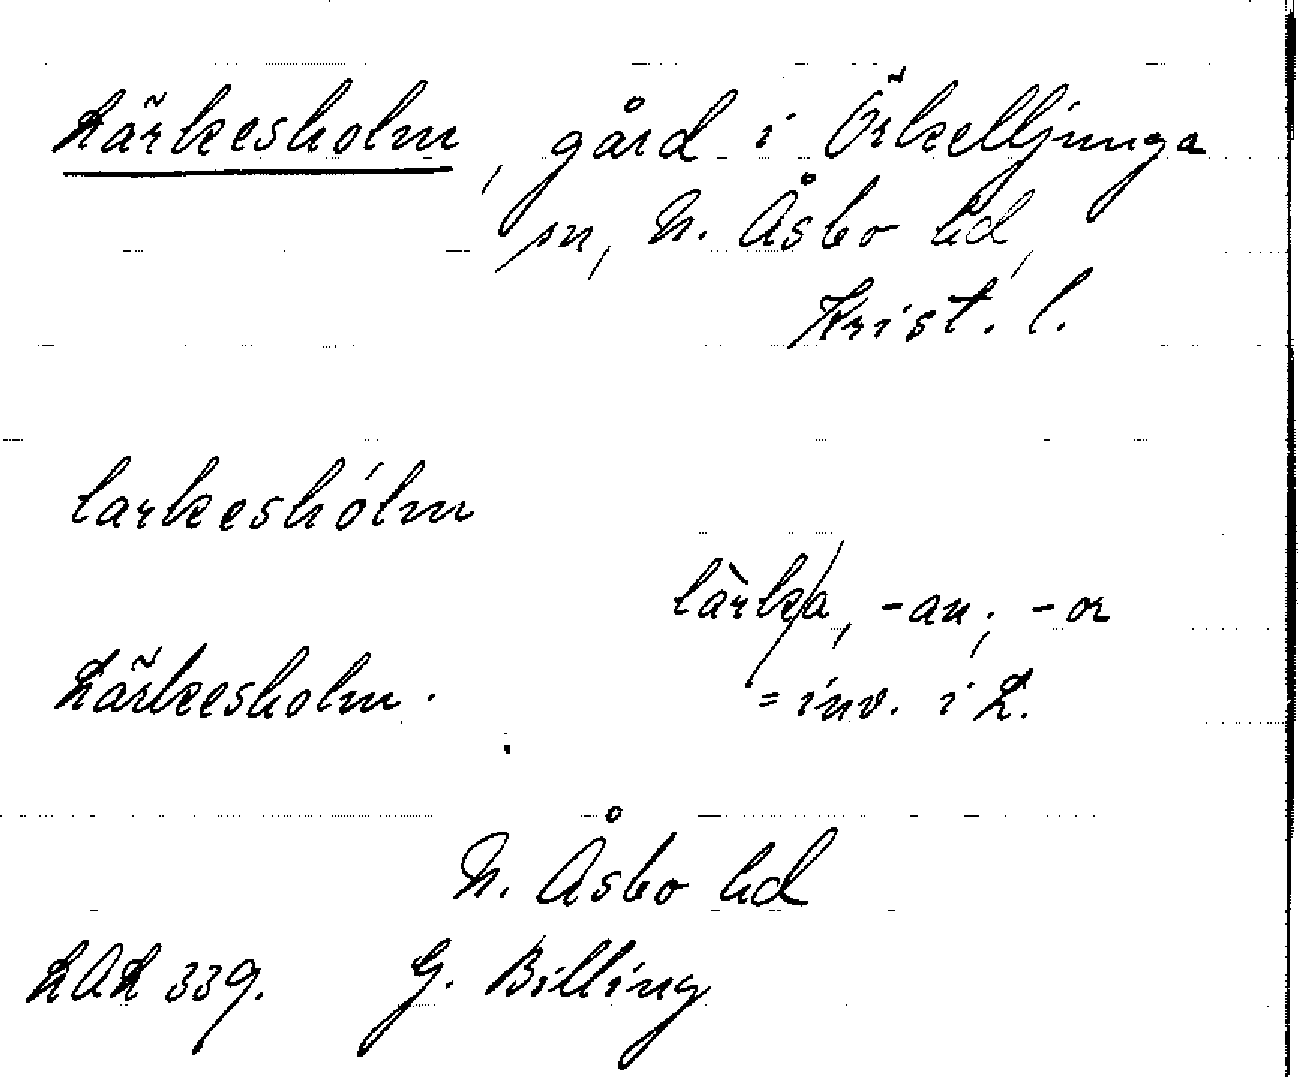 Lärkesholm, gård i Örkelljunga
sn, N. Åsbo hd,
Krist. l.
larkeshólm
làrk/a, -an; -or
Lärkesholm.
= inv. i L.
N. Åsbo hd
LAL 339. G. Billing